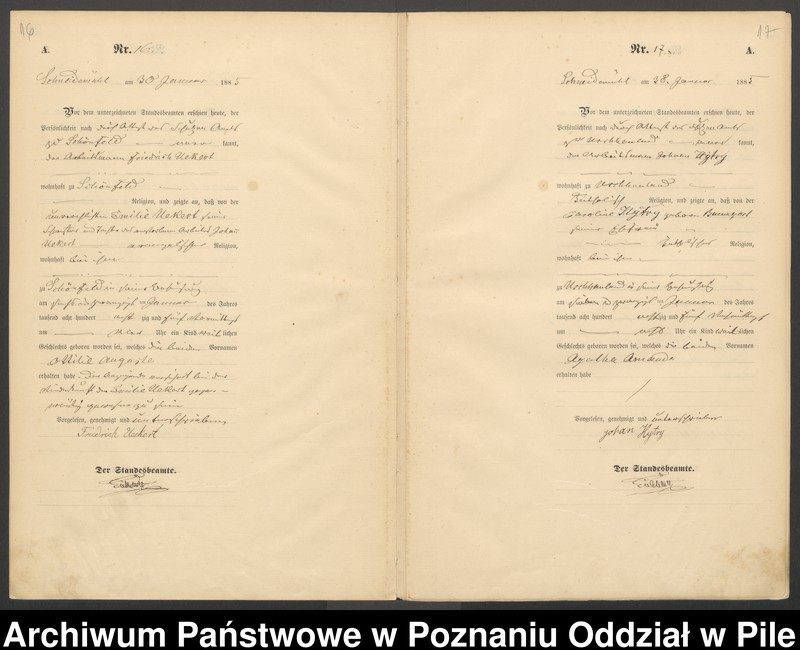 16
A.
Nr. 16
Schneidemühl am 30 Januar 1885
Vor dem unterzeichneten Standesbeamten erschien heute, der
Persönlichkeit nach durch Attest des Schulzen Amts
zu Schönfeld kannt,
der Arbeitsmann Friedrich Ueckert
wohnhaft zu Schönfeld
Religion, und zeigte an, daß von der
unverehelichten Emilie Ueckert seine
Schwester und Tochter des verstorbenen Arbeiter Johan
Ueckert evangelischer Religion,
wohnhaft bei ihm
zu Schönfeld in seine Behausung
am sechs und zwanzigsten Januar des Jahres
tausend acht hundert acht zig und fünf
um acht Uhr ein Kind weiblichen
Geschlechts geboren worden sei, welches die beiden Vornamen
Ottilie Auguste
erhalten habe. Der Anzeigende versichert bei der
Niederkunft der Emilie Ueckert gegen-
wärtig gewesen zu sein
Vorgelesen, genehmigt und unterschrieben
Friedrich Ueckert
Der Standesbeamte.
17
A.
Nr. 17
Schneidemühl am 28. Januar 1885
Vor dem unterzeichneten Standesbeamten erschien heute, der
Persönlichkeit nach durch Attest des Schulzen Amts
zu Uschhauland kannt,
der Arbeitsmann Johann Hytry
wohnhaft zu Uschhauland
katholisch Religion, und zeigte an, daß von der
Caroline Hytry geboren Baumgart
seine Ehefrau
katholischer Religion,
wohnhaft bei ihm
zu Uschhauland in seine Behausung
am sieben und zwanzigsten Januar des Jahres
tausend acht hundert achtzig und fünf Vormittags
um acht Uhr ein Kind weiblichen
Geschlechts geboren worden sei, welches die beiden Vornamen
Agatha Amanda
erhalten habe
Vorgelesen, genehmigt und unterschrieben
Johan Hytry
Der Standesbeamte.
Archiwum Państwowe w Poznaniu Oddział w Pile